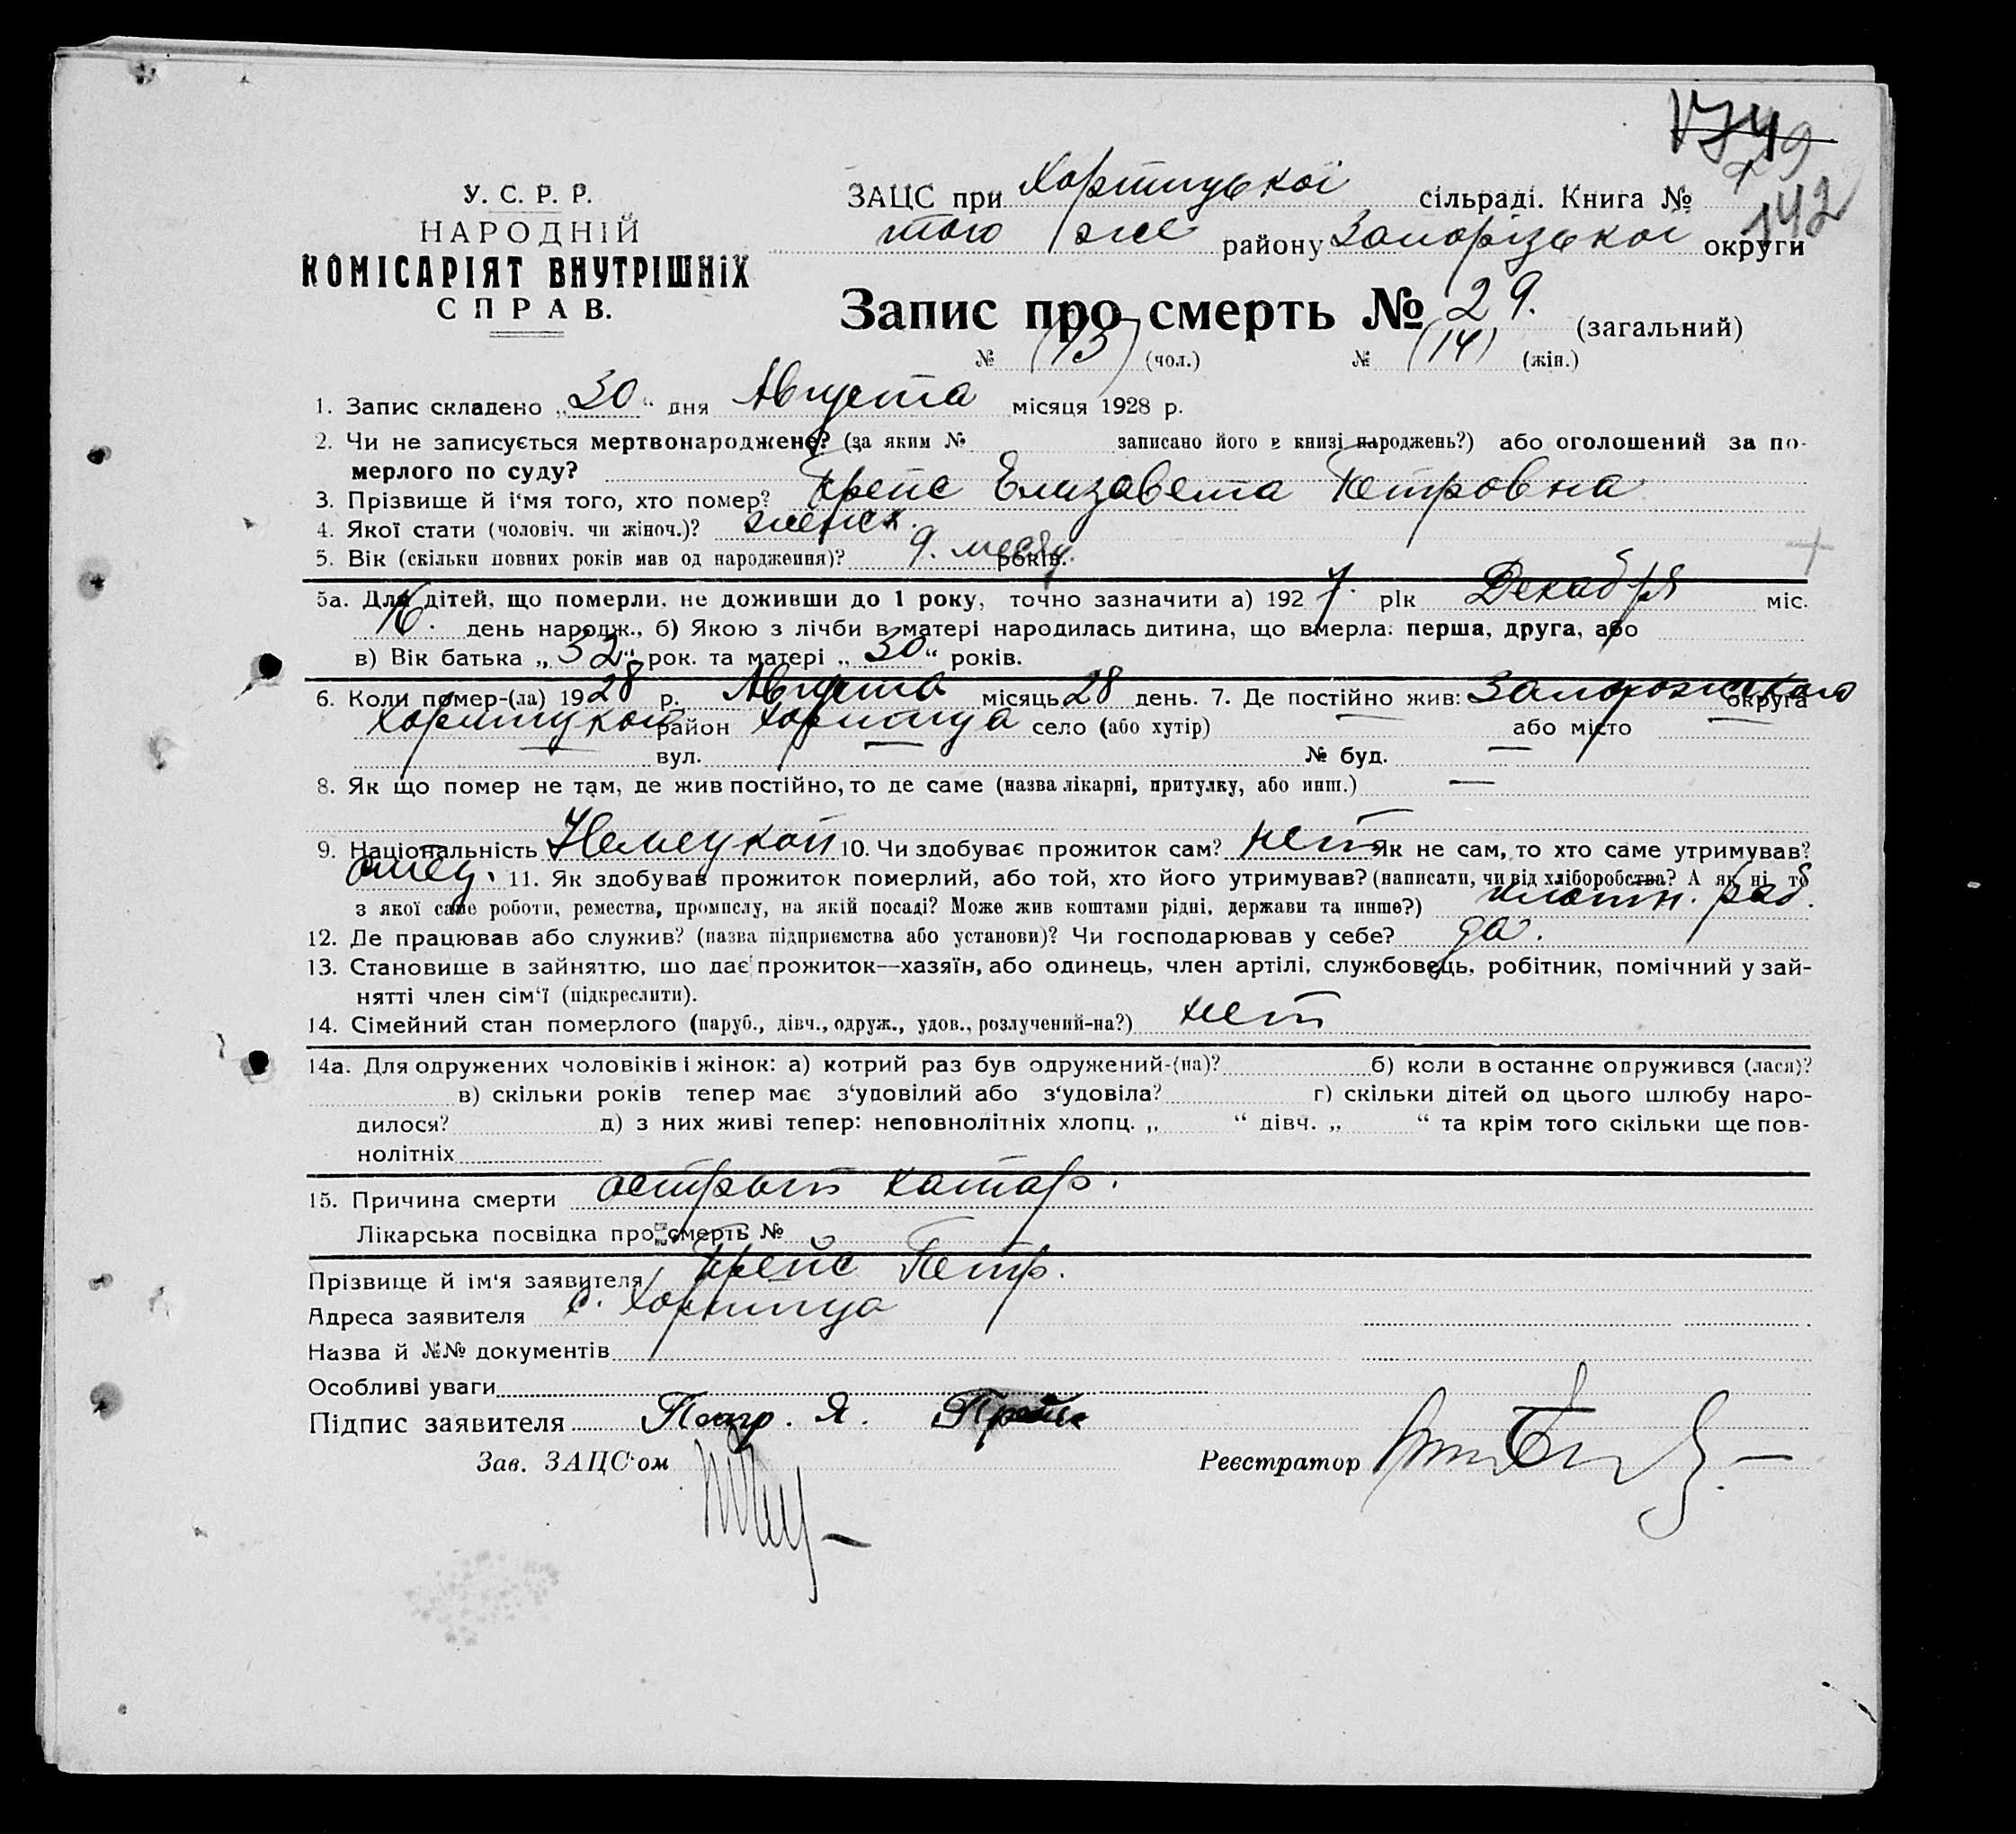 1749
79
142
У. С. Р. Р.
НАРОДНІЙ
КОМІСАРІЯТ ВНУТРІШНІХ
СПРАВ.
ЗАЦС при Хортицької сільраді. Книга №
того же району Запорізької округи
Запис про смерть № 29. (загальний)
№ (15) (чол.) № (14) (жін.)
1. Запис складено „30“ дня Августа місяця 1928 р.
2. Чи не записується мертвонароджене? (за яким № записано його в книзі народжень?) або оголошений за по-
мерлого по суду?
3. Прізвище й і'мя того, хто помер? Прейс Елизавета Петровна
4. Якої стати (чоловіч. чи жіноч.)? женск.
5. Вік (скільки повних років мав од народження)? 9. месяц. років.
5а. Для дітей, що померли, не доживши до 1 року, точно зазначити а) 1927. рік Декабря міс.
16. день народж., б) Якою з лічби в матері народилась дитина, що вмерла: перша, друга, або
в) Вік батька „32“ рок. та матері „30“ років.
6. Коли помер-(ла) 1928 р. Августа місяць 28 день. 7. Де постійно жив: Запорожского округа
Хортицкой район Хортица село (або хутір) — або місто —
— вул. — № буд. —
8. Як що помер не там, де жив постійно, то де саме (назва лікарні, притулку, або инш.) —
9. Національність Немецкой 10. Чи здобуває прожиток сам? нет Як не сам, то хто саме утримував?
отец. 11. Як здобував прожиток померлий, або той, хто його утримував? (написати, чи від хліборобства? А як ні, то
з якої саме роботи, ремества, промислу, на якій посаді? Може жив коштами рідні, держави та инше?) плотн. раб.
12. Де працював або служив? (назва підприємства або установи)? Чи господарював у себе? да.
13. Становище в зайняттю, що дає прожиток—хазяїн, або одинець, член артілі, службовець, робітник, помічний у зай-
нятті член сім'ї (підкреслити).
14. Сімейний стан померлого (паруб., дівч., одруж., удов., розлучений-на?) нет
14а. Для одружених чоловіків і жінок: а) котрий раз був одружений-(на)? б) коли востаннє одружився (лася)?
в) скільки років тепер має з'удовілий або з'удовіла? г) скільки дітей од цього шлюбу наро-
дилося? д) з них живі тепер: неповнолітніх хлопц. „ “ дівч. „ “ та крім того скільки ще пов-
нолітніх
15. Причина смерти острый катар.
Лікарська посвідка про смерть №
Прізвище й ім'я заявителя Прейс Петр.
Адреса заявителя с. Хортица
Назва й №№ документів
Особливі уваги
Підпис заявителя Петр. Я. Прейс
Зав. ЗАЦС'ом Реєстратор